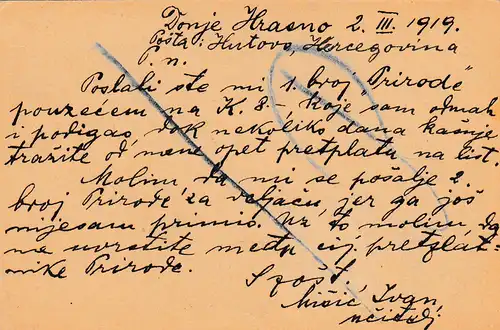 Donje Hrasno 2. III. 1919.
Pošta: Hutovo, Hercegovina
P. n.
Poslali ste mi 1. broj „Prirode"
pouzećem na K. 8- koje sam odmah
i podigao, dok nekoliko dana kašnje
tražite od mene opet pretplatu na list
Molim, da mi se pošalje 2.
broj „Prirode" za veljaču, jer ga još
nijesam primio. Uz to molim, da
me uvrstite među cij. pretplat-
nike Prirode.
S pošt.
Mišić Ivan,
učitelj